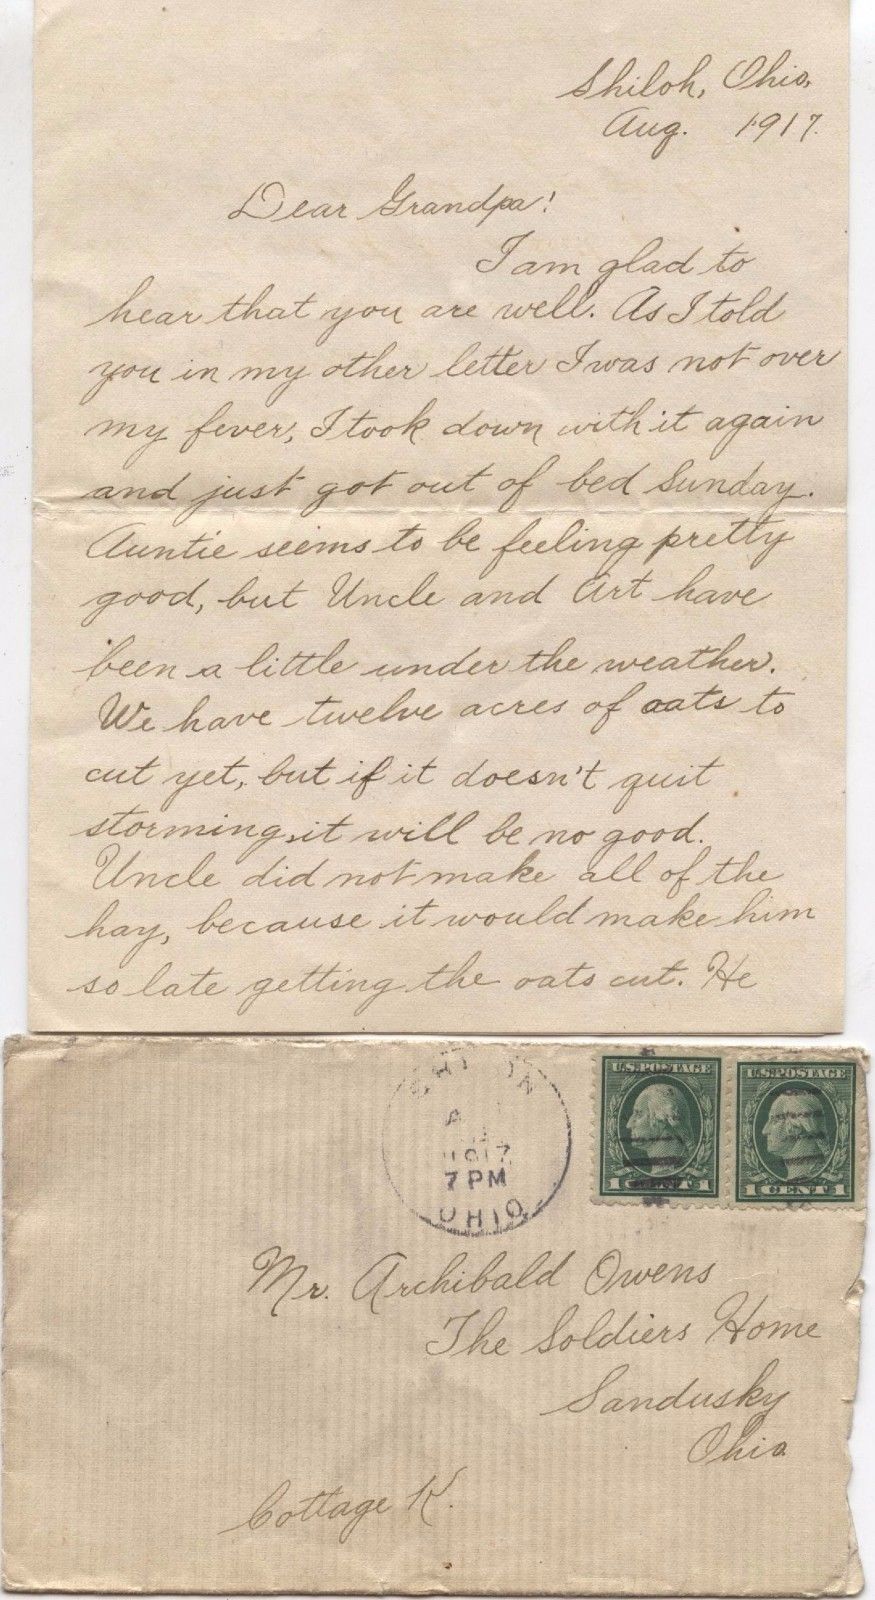 Shiloh, Ohio,
Aug. 1917.
Dear Grandpa!
I am glad to
hear that you are well. As I told
you in my other letter I was not over
my fever, I took down with it again
and just got out of bed Sunday.
Auntie seems to be feeling pretty
good, but Uncle and Art have
been a little under the weather.
We have twelve acres of oats to
cut yet, but if it doesn't quit
storming, it will be no good.
Uncle did not make all of the
hay, because it would make him
so late getting the oats cut. He
U.S. POSTAGE U.S. POSTAGE
1 CENT 1 1 CENT 1
1917
7 PM
OHIO
Mr. Archibald Owens
The Soldiers Home
Sandusky
Ohio
Cottage K.